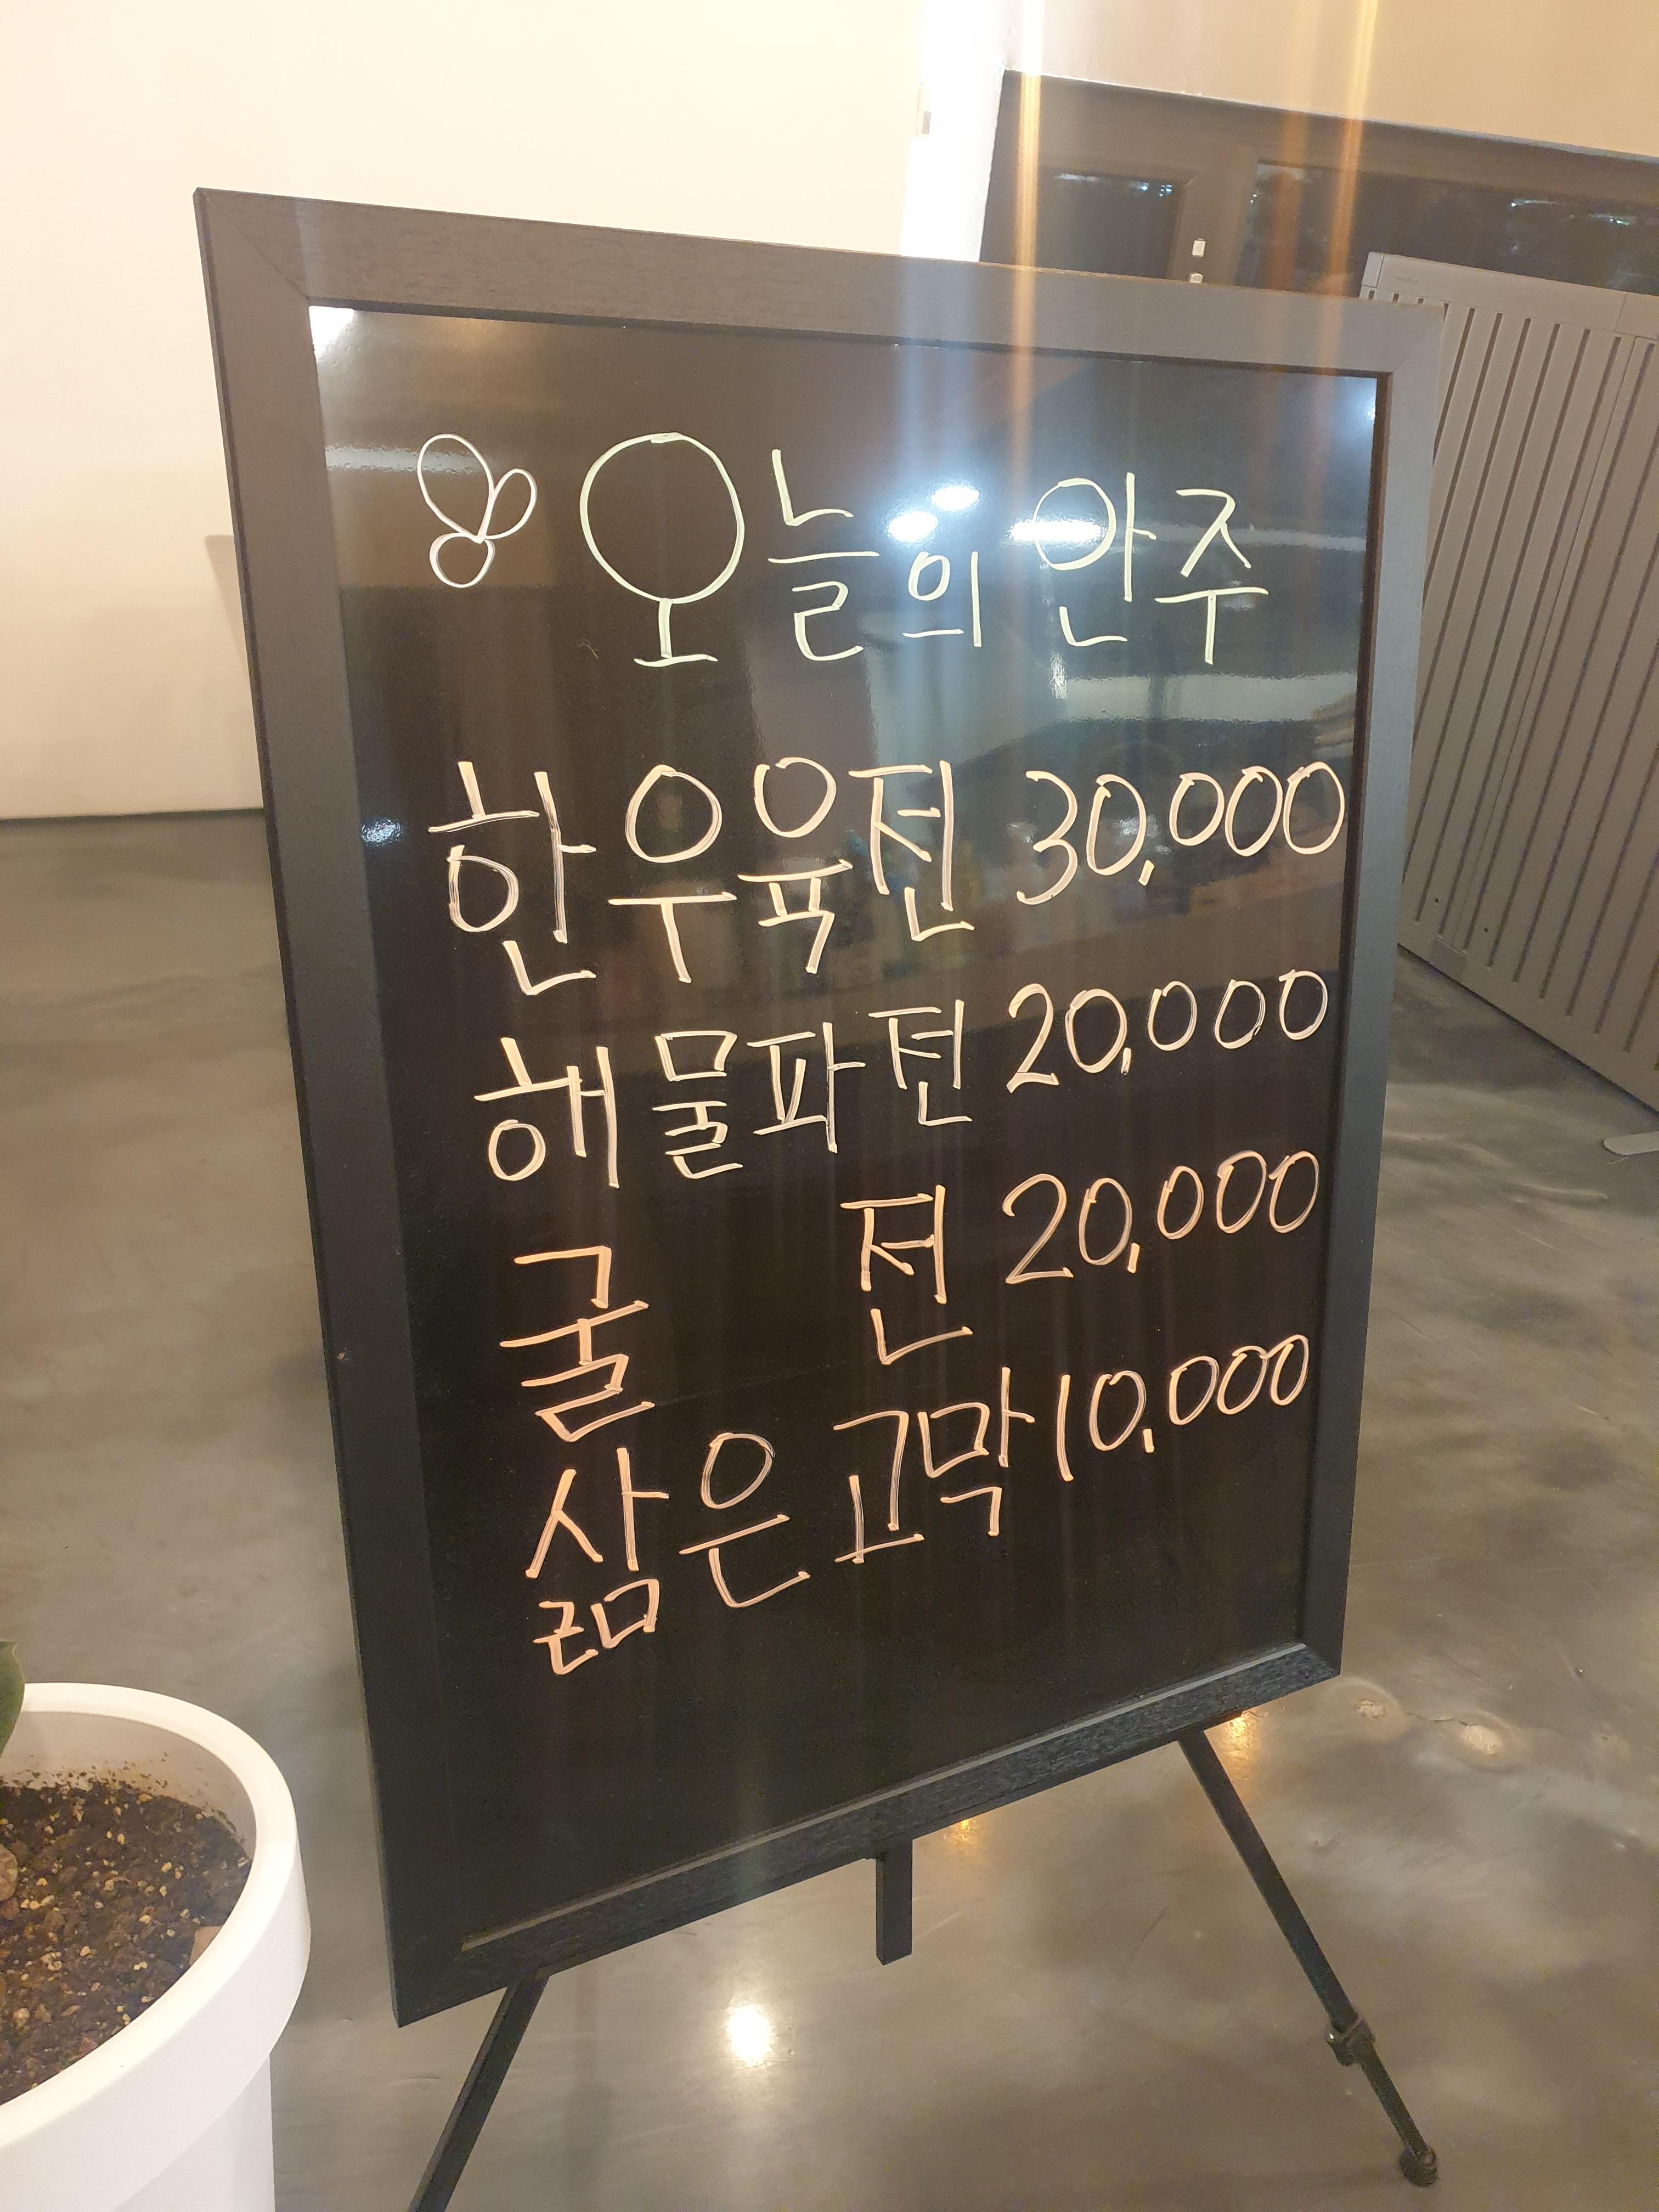 오늘의 안주
한우육전 30,000
해물파전 20,000
굴 전 20,000
삶은 고막 10,000